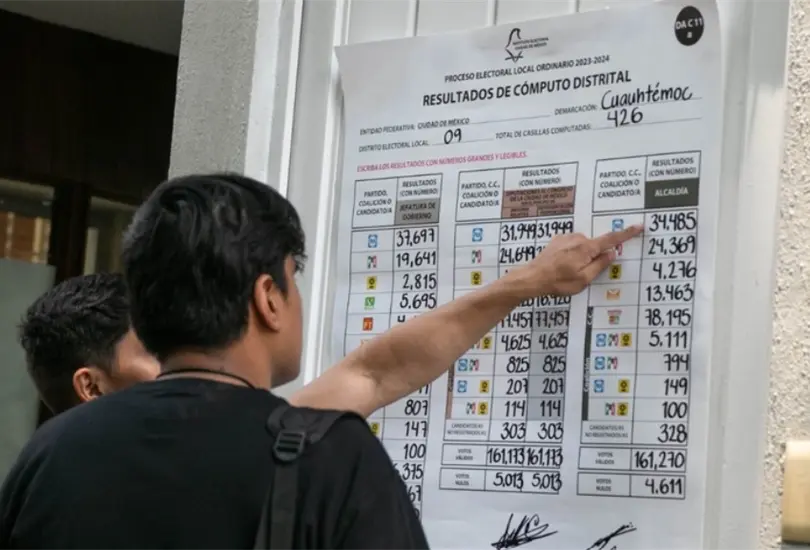 DA C 11
INSTITUTO ELECTORAL
CIUDAD DE MÉXICO
PROCESO ELECTORAL LOCAL ORDINARIO 2023-2024
RESULTADOS DE CÓMPUTO DISTRITAL
ENTIDAD FEDERATIVA: CIUDAD DE MÉXICO DEMARCACIÓN: Cuauhtémoc
DISTRITO ELECTORAL LOCAL: 09 TOTAL DE CASILLAS COMPUTADAS: 426
ESCRIBA LOS RESULTADOS CON NÚMEROS GRANDES Y LEGIBLES.
PARTIDO, C.C., COALICIÓN O CANDIDATO/A
RESULTADOS (CON NÚMERO)
JEFATURA DE GOBIERNO
37,697
19,641
2,815
5,695
807
147
100
PARTIDO, C.C., COALICIÓN O CANDIDATO/A
RESULTADOS (CON NÚMERO)
DIPUTACIONES AL CONGRESO DE LA CIUDAD DE MÉXICO
31,949 31,949
24,649
4,625 4,625
825 825
207 207
114 114
CANDIDATOS/AS NO REGISTRADOS/AS 303 303
VOTOS VÁLIDOS 161,173 161,173
VOTOS NULOS 5,013 5,013
PARTIDO, C.C., COALICIÓN O CANDIDATO/A
RESULTADOS (CON NÚMERO)
ALCALDÍA
34,485
24,369
4,276
13,463
78,195
5,111
794
149
100
CANDIDATOS/AS NO REGISTRADOS/AS 328
VOTOS VÁLIDOS 161,270
VOTOS NULOS 4,611